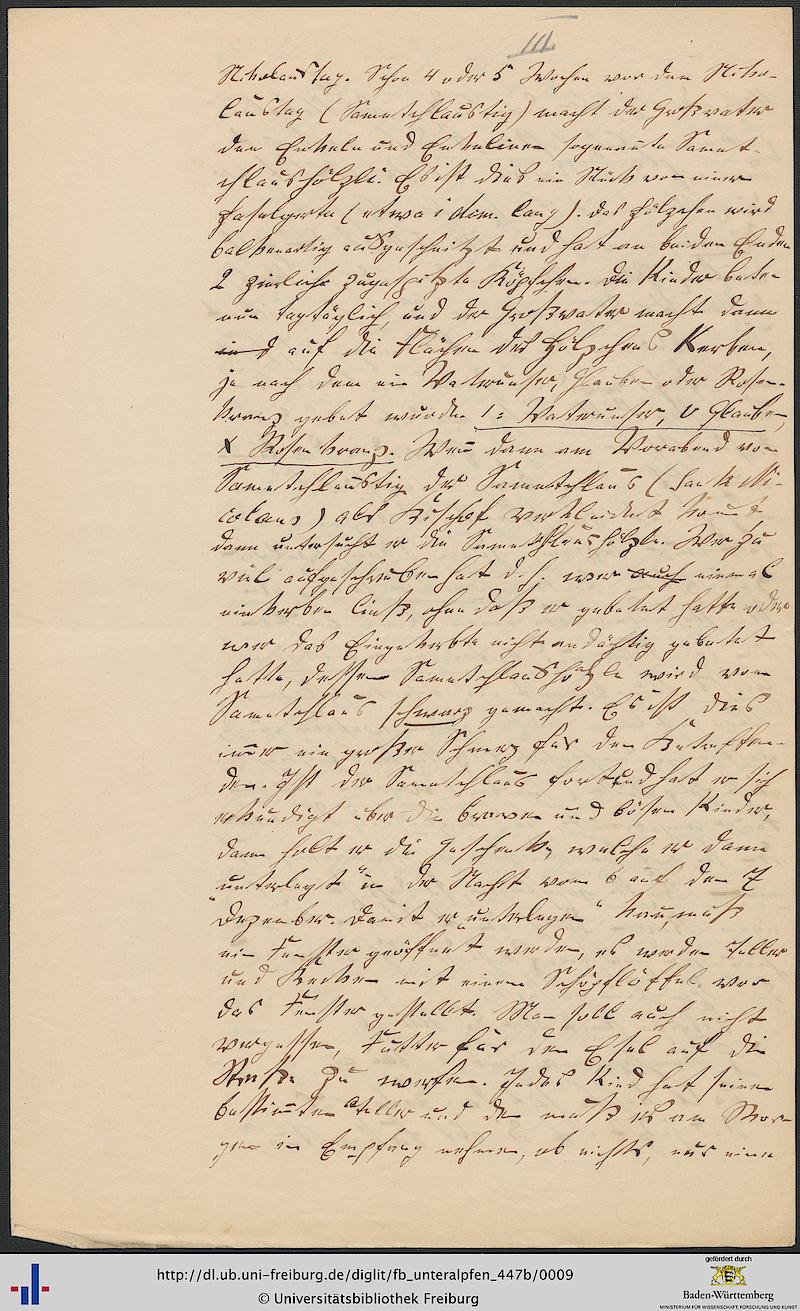 III
Nikolaustag. Schon 4 oder 5 Wochen vor dem Niko-
laustag (Sametchlaustig) macht der Großvater
den Enkeln und Enkelinen sogenannte Samet-
chlaushölzli. Es ist dies ein Stück von einer
Haselgerte (etwa 1 dcm. lang). Das Hölzchen wird
balkenartig ausgeschnitzt und hat an beiden Enden
2 zierliche zugespitzte Köpfchen. Die Kinder beten
nun tagtäglich, und der Großvater macht dann
auf die Flächen des Hölzchens Kerben,
je nach dem ein Vaterunser, Glauben oder Rosen-
kranz gebet wurde. I = Vaterunser, V Glauben,
X Rosenkranz. Wenn dann am Vorabend vom
Sametchlaustig der Sametchlaus (Sankt Ni-
colaus) als Bischof verkleidet kommt,
dann untersucht er die Sametchlaushölzle. Wer zu
viel aufgeschrieben hat d. h. wer auch einmal
einkerben ließ, ohne daß er gebetet hatte oder
wer das Eingekerbte nicht andächtig gebetet
hatte, dessen Sametchlaushölzle wird vom
Sametchlaus schwarz gemacht. Es ist dies
immer ein großer Schmerz für den Betreffen-
den. Ist der Sametchlaus fort und hat er sich
erkundigt über die braven und bösen Kinder,
dann holt er die Geschenke, welche er dann
"unterlegt" in der Nacht vom 6 auf den 7
Dezember. Damit er "unterlegen" kann, muß
ein Fenster geöffnet werden, es werden Teller
und Becken mit einem Schöpflöffel vor
das Fenster gestellt. Man soll auch nicht
vergessen, Futter für den Esel auf die
Straße zu werfen. Jedes Kind hat seinen
bestimmten Teller und den muß es am Mor-
gen in Empfang nehmen, ob nichts, nur eine
http://dl.ub.uni-freiburg.de/diglit/fb_unteralpfen_447b/0009
© Universitätsbibliothek Freiburg
gefördert durch
Baden-Württemberg
MINISTERIUM FÜR WISSENSCHAFT, FORSCHUNG UND KUNST